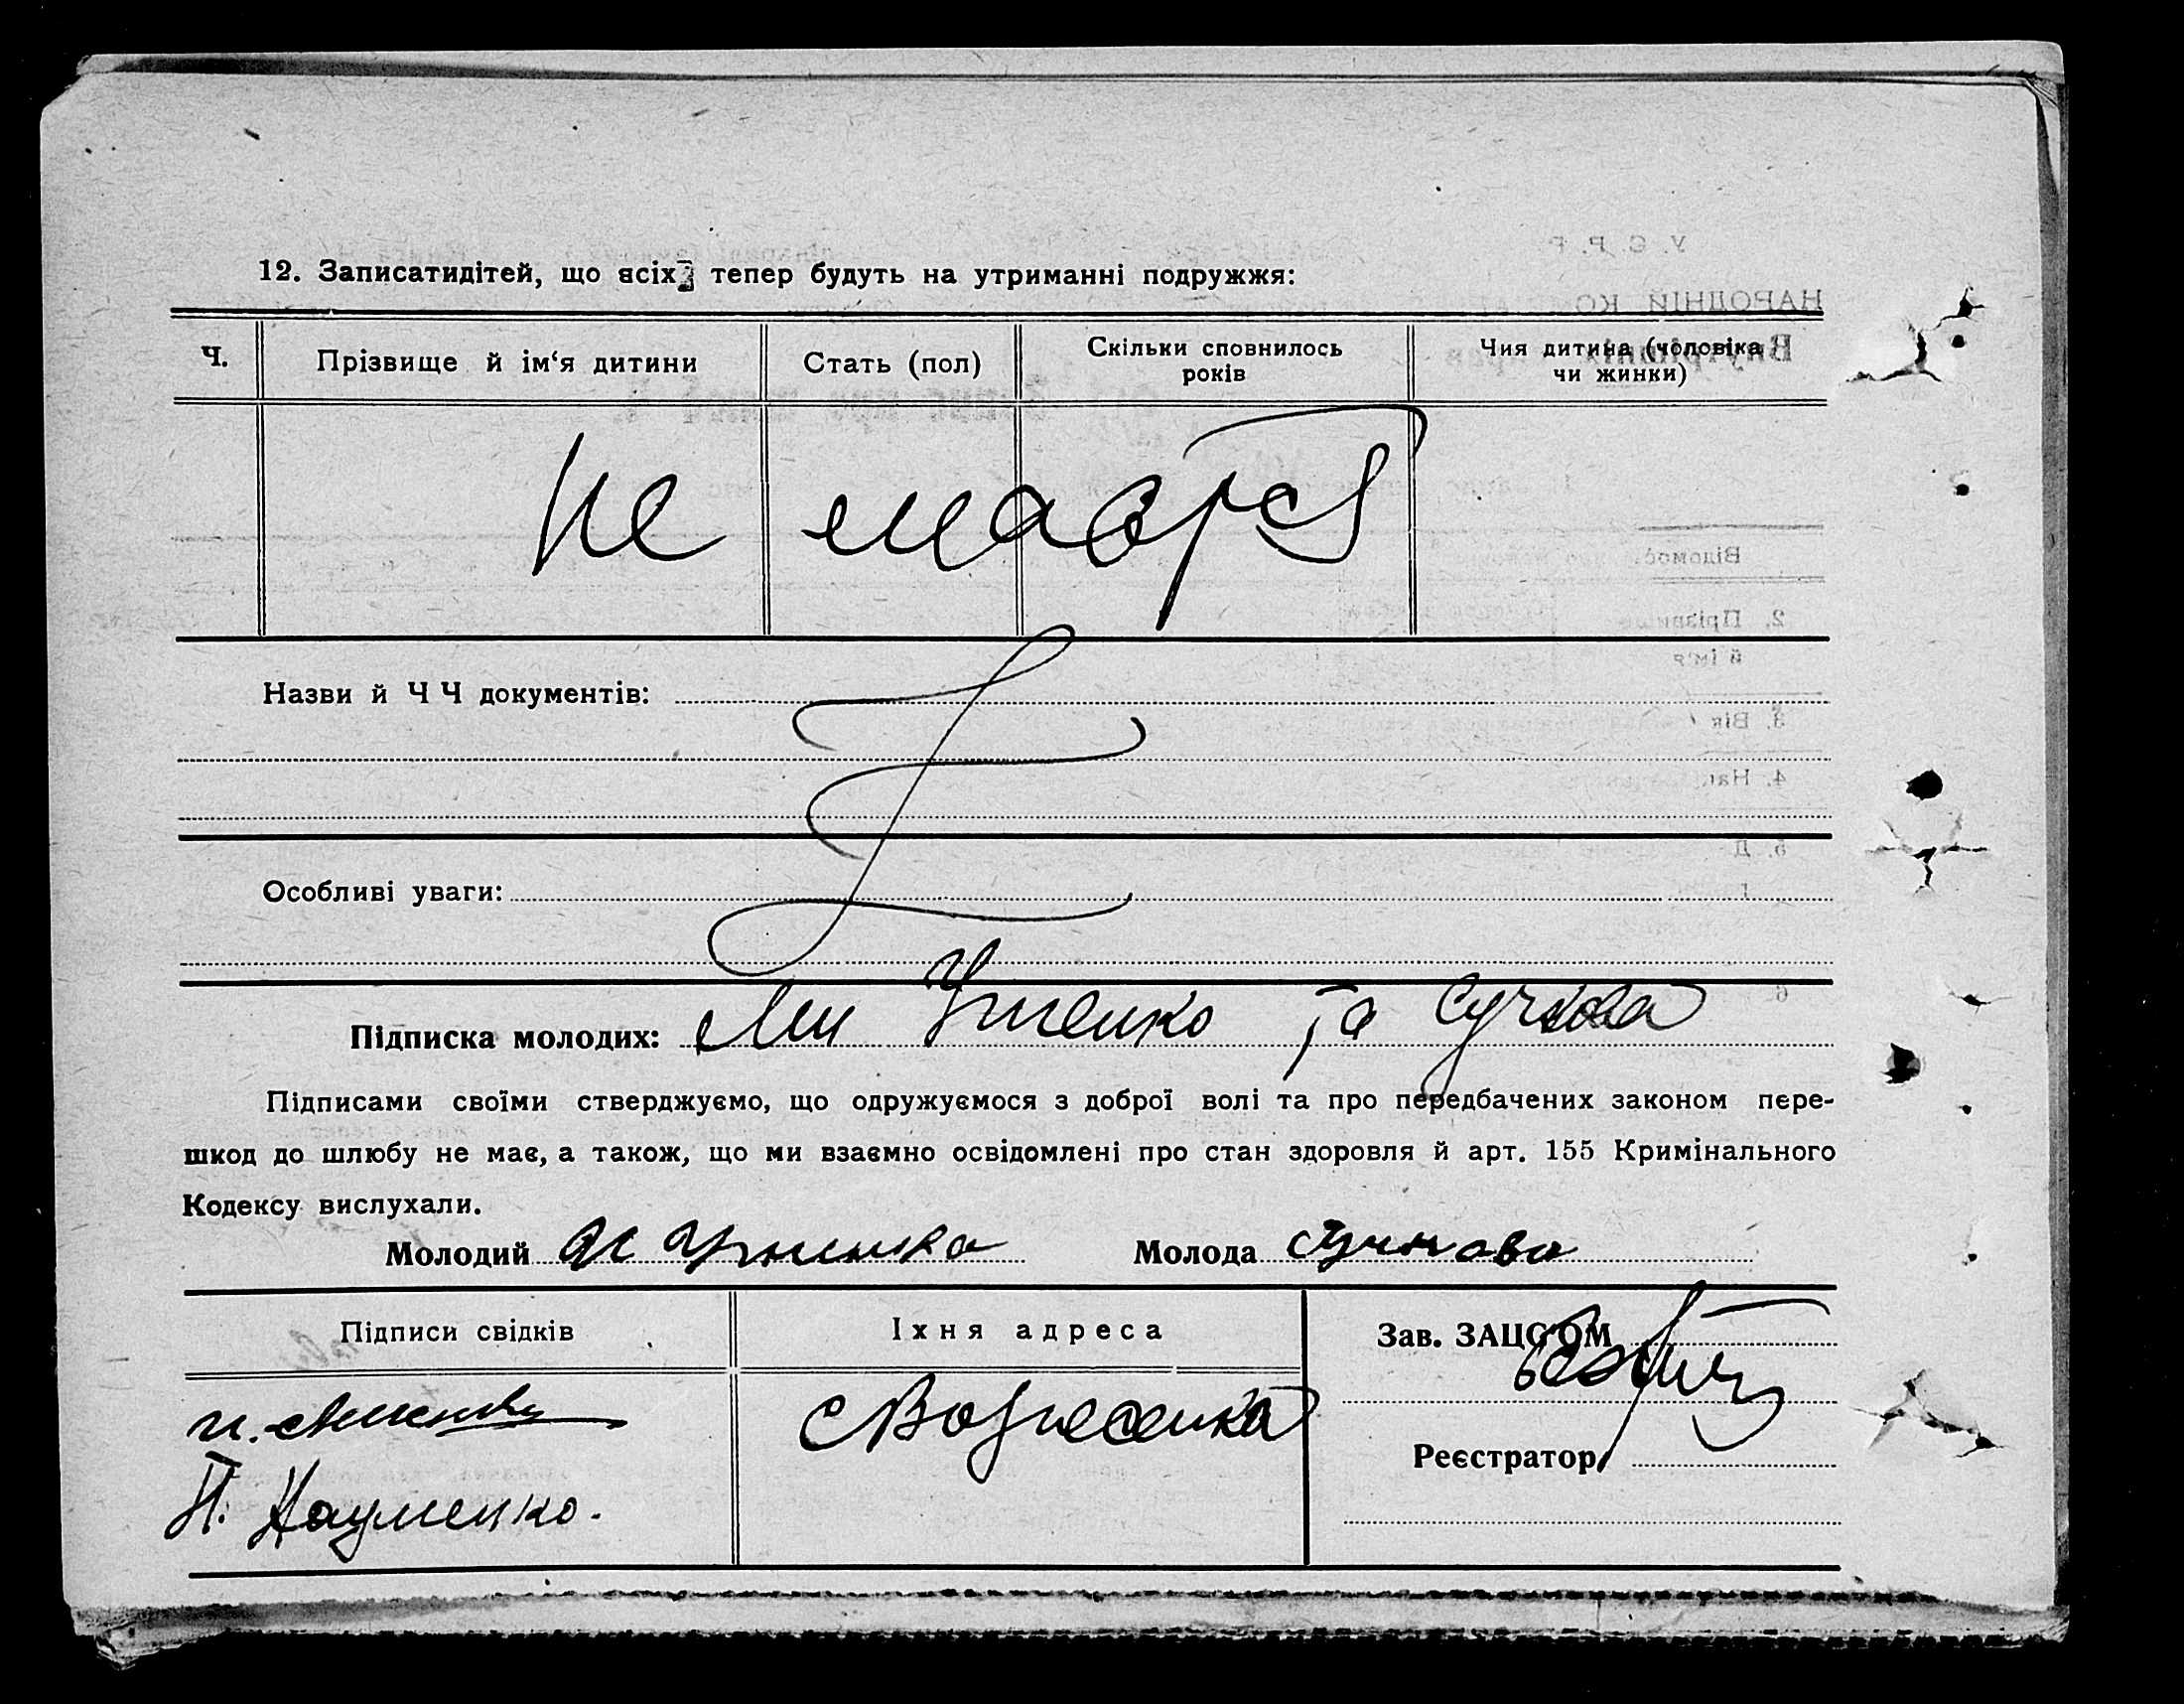 12. Записатидітей, що всіх тепер будуть на утриманні подружжя:
Ч.
Прізвище й ім‘я дитини
Стать (пол)
Скільки сповнилось років
Чия дитина (чоловіка чи жинки)
не мается
Назви й Ч Ч документів:
Особливі уваги:
Підписка молодих: Ми та Сучкова
Підписами своїми стверджуємо, що одружуємося з доброї волі та про передбачених законом пере-
шкод до шлюбу не має, а також, що ми взаємно освідомлені про стан здоровля й арт. 155 Кримінального
Кодексу вислухали.
Молодий
Молода Сучкова
Підписи свідків
Їхня адреса
Зав. ЗАЦС'ОМ
Вознесенка
Реєстратор
П. Науменко.